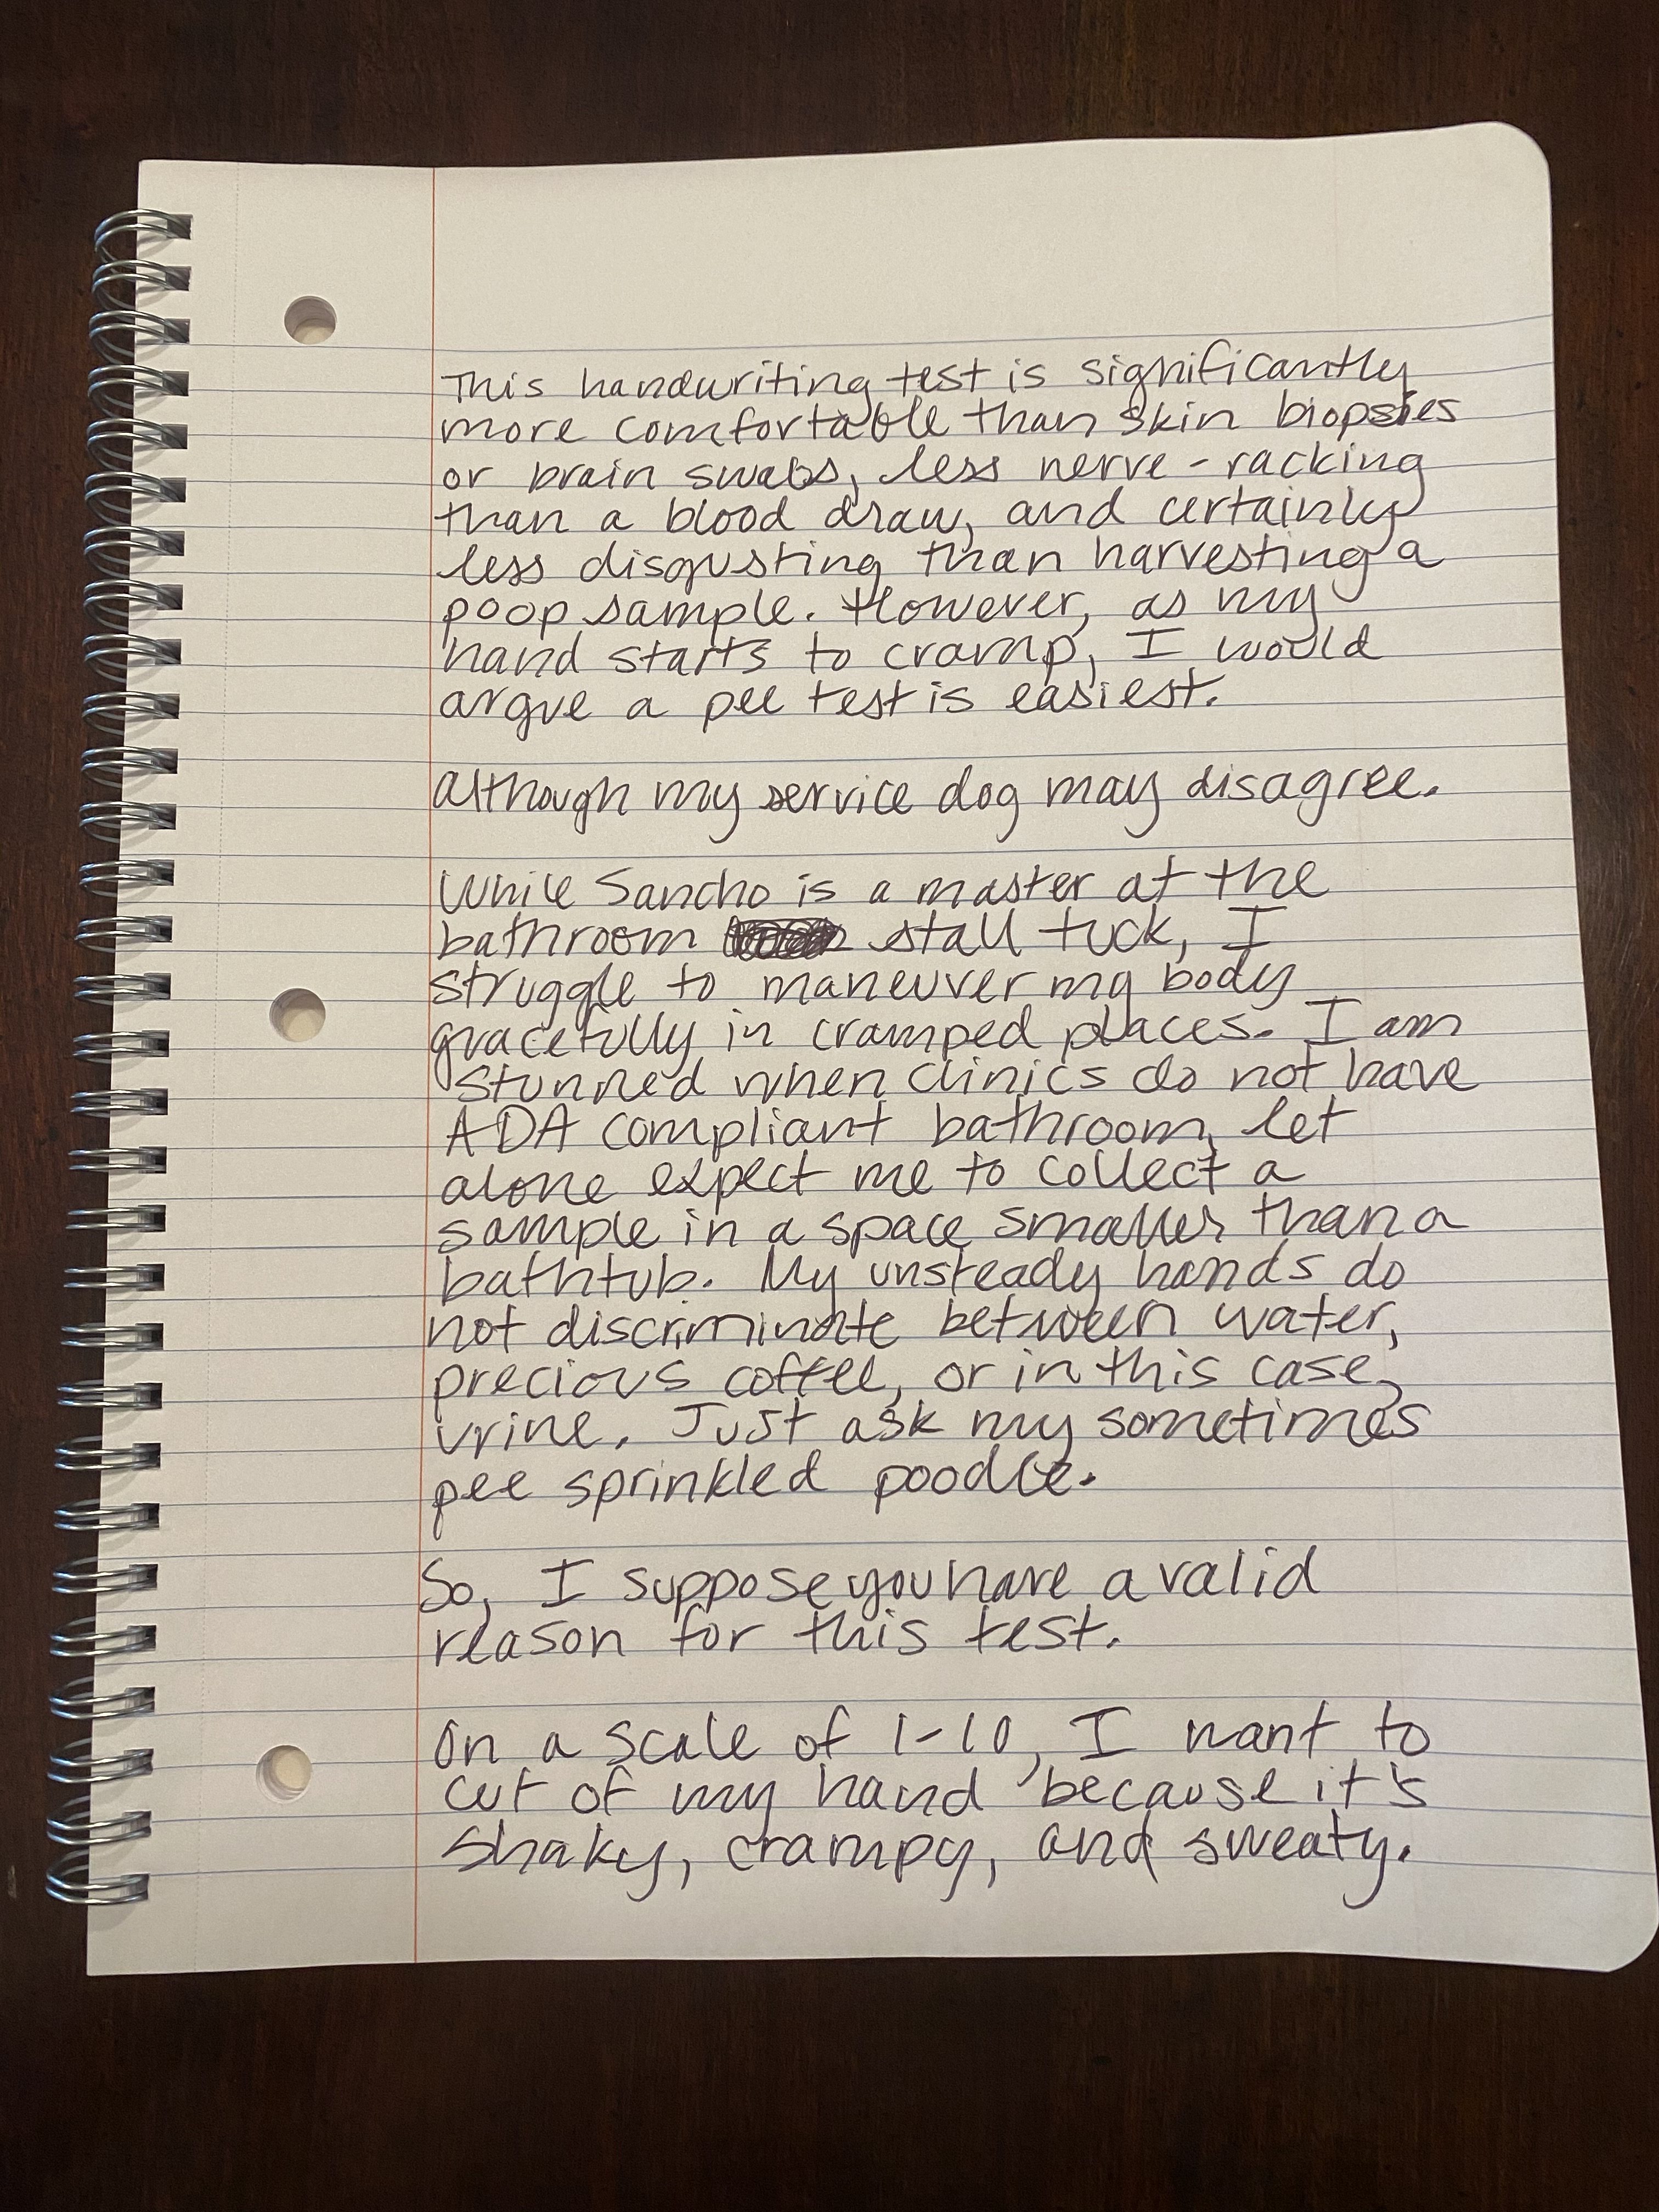 This handwriting test is significantly
more comfortable than skin biopsies
or brain swabs, less nerve-racking
than a blood draw, and certainly
less disgusting than harvesting a
poop sample. However, as my
hand starts to cramp, I would
argue a pee test is easiest.
Although my service dog may disagree.
While Sancho is a master at the
bathroom stall tuck, I
struggle to maneuver my body
gracefully in cramped places. I am
stunned when clinics do not have
ADA compliant bathroom, let
alone expect me to collect a
sample in a space smaller than a
bathtub. My unsteady hands do
not discriminate between water,
precious coffee, or in this case,
urine. Just ask my sometimes
pee sprinkled poodle.
So, I suppose you have a valid
reason for this test.
On a scale of 1-10, I want to
cut of my hand because it's
shaky, crampy, and sweaty.